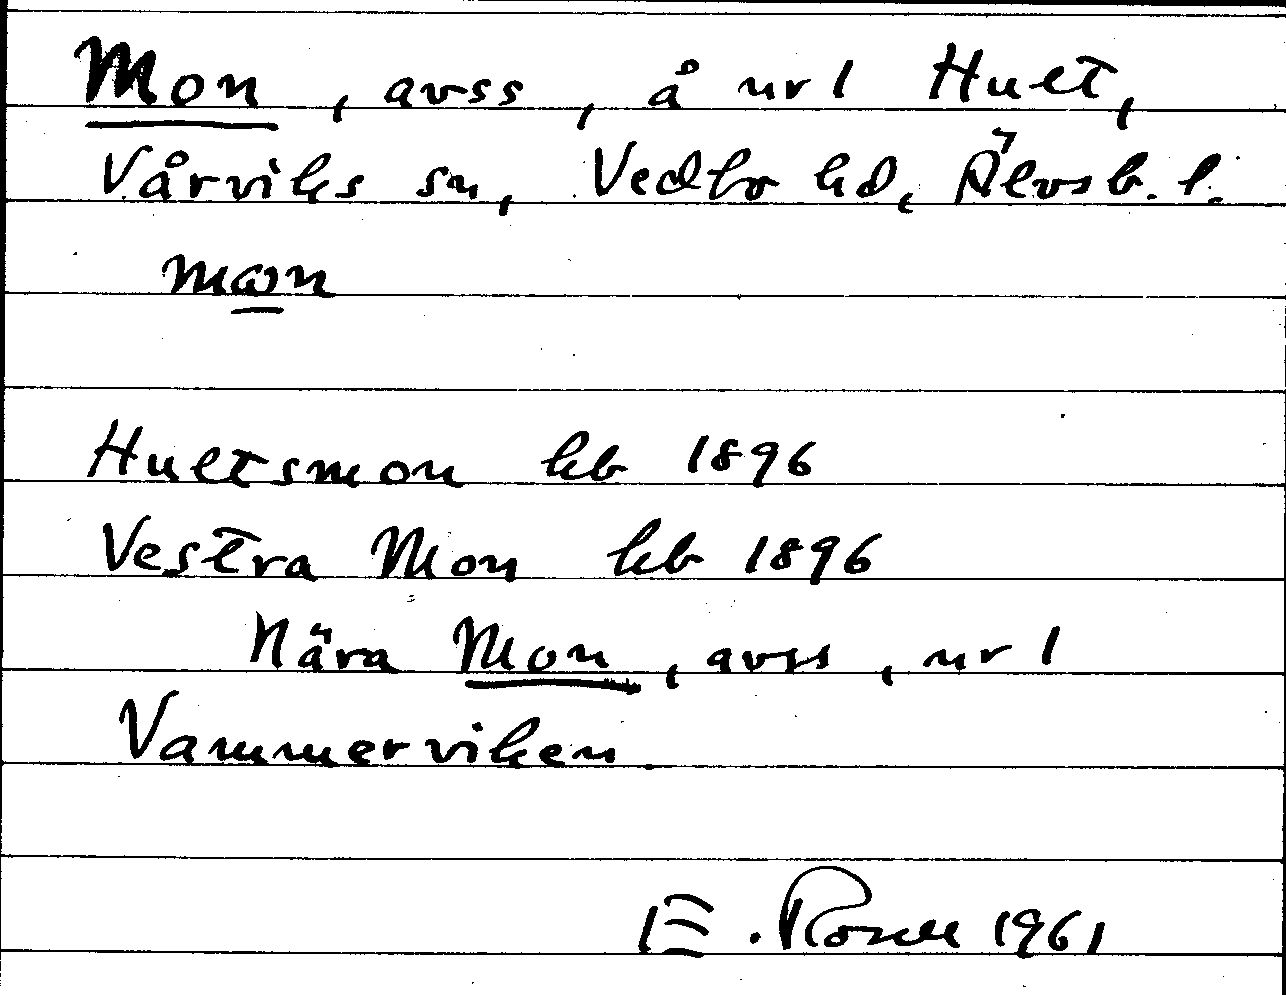 Mon, avss, å nr 1 Hult,
Vårviks sn, Vedbo hd, Älvsb. l.
Hultsmon kb 1896
Vestra Mon kb 1896
Nära Mon, avss, nr 1
Vammerviken
E. Rosell 1961